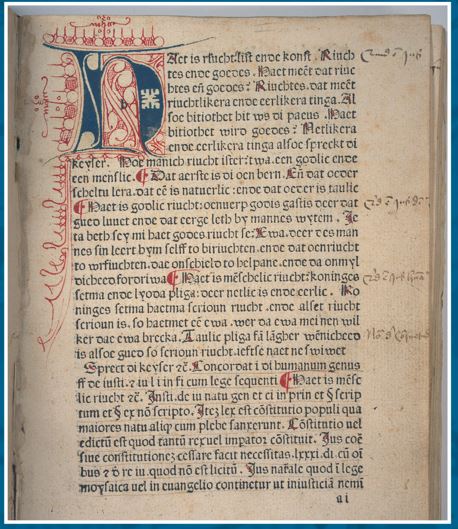 HAet is riucht:list ende konst. Riuch
tes ende goedes. Haet meēt dat riuc
htes eñ goedes? Riuchtes. dat meēt
riuchtlikera ende eerlikera tinga. Al
soe bitiothet hit ws di paeus. Haet
bitiothet wird goedes? Netlikera
ende eerlikera tinga alsoe spreekt di
keyser. Hoe manich riucht ister: twa. een godlic ende
een menslic. Dat aerste is di oen bern. Eñ dat oeder
scheltu lera. dat eē is natuerlic: ende dat oeder is taulic
Haet is godlic riucht: oenuerp godis gastis deer dat
gued luuet ende dat eerge leth by mannes wytem. Je
ta beth sey mi haet godes riucht se: Ewa. deer des man
nes sin leert hym self to biriuchten. ende dat oenriucht
to wrfiuchten. dae onschield to helpane. ende da onmyl
dicheed forordriwa Haet is mēschelic riucht? koninges
setma ende lyoda pliga: deer netlic is ende eerlic. Ko
ninges setma haetma scrioun riucht. ende alset riucht
scrioun is. so haetmet eē ewa. wer da ewa mei nen wil
ker dae ewa brecka. Taulic pliga fā lāgher wēnicheed
is alsoe gued so scrioun riucht. ieftse naet ne swiwet
Sprect di keyser ꝛč. Concordat i di humanum genus
ff de iusti. ⁊ iu l i in fi cum lege sequenti Haet is mēsc
lic riucht ꝛč. Insti. de iu natu gen et ci in prin et § scrip
tum et § ex nō scripto. Itez lex est cōstitutio populi qua
maiores natu aliq cum plebe sanxerunt. Cōstitutio uel
edictū est quod tantū rex uel impator cōstituit. Jus coē
siue constitutionez cessare facit necessitas. lxxxi. di. cū oī
bus ⁊ ð re iu. quod nō est licitū. Jus naťale quod ī lege
moysaica uel in euangelio continetur ut iniusticiā nemī
ai